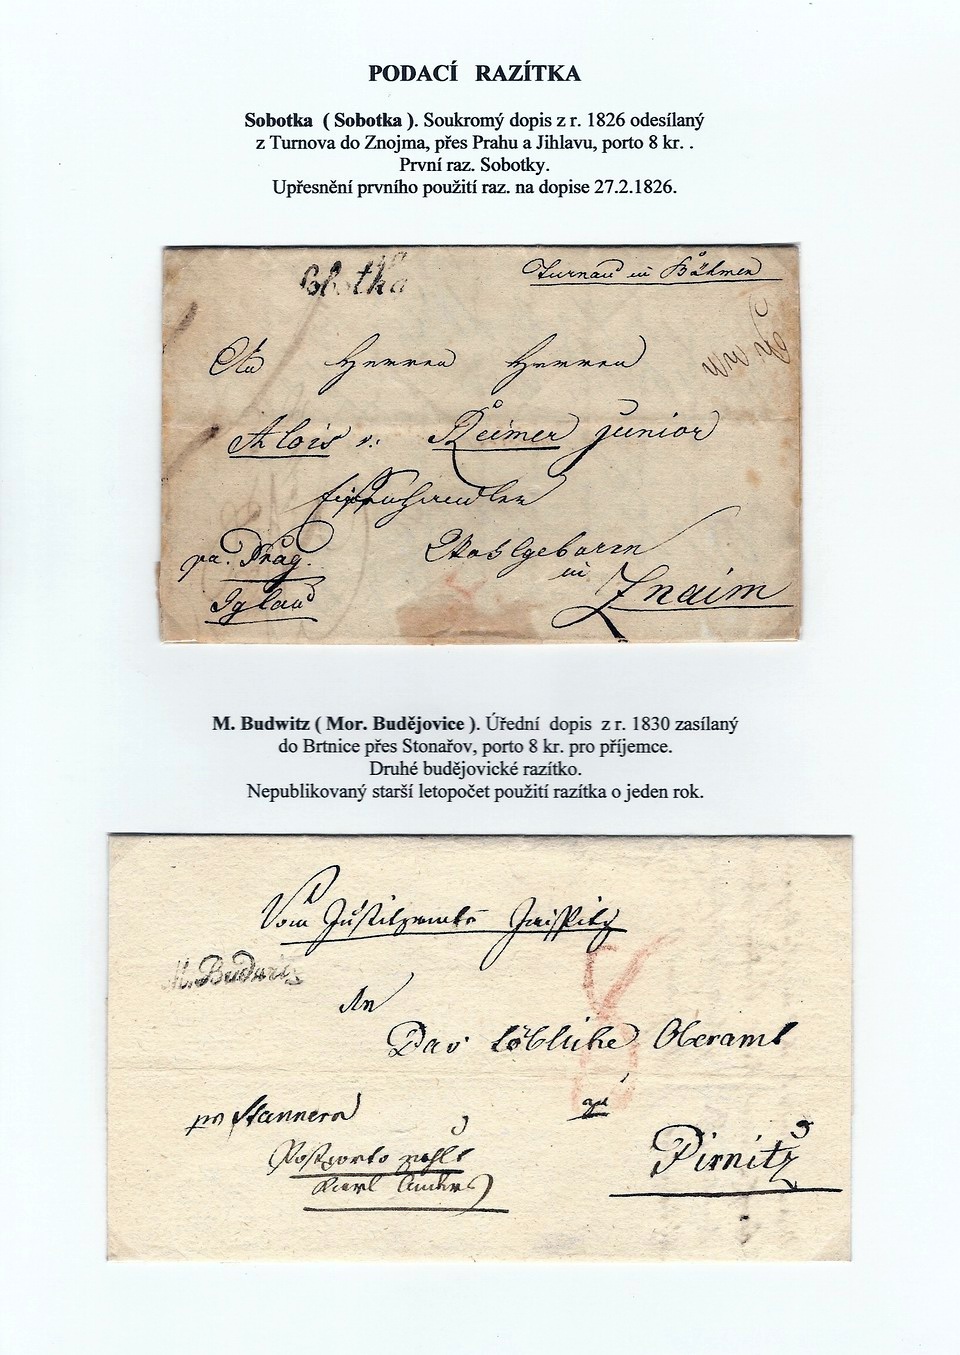 PODACÍ RAZÍTKA
Sobotka ( Sobotka ). Soukromý dopis z r. 1826 odesílaný
z Turnova do Znojma, přes Prahu a Jihlavu, porto 8 kr. .
První raz. Sobotky.
Upřesnění prvního použití raz. na dopise 27.2.1826.
Sobotka
Turnau in Böhmen
An Herren Herren
Alois v: Reimer junior
Eisenhändler
pr. Prag. Wohlgeboren
in
Iglau Znaim
M. Budwitz ( Mor. Budějovice ). Úřední dopis z r. 1830 zasílaný
do Brtnice přes Stonařov, porto 8 kr. pro příjemce.
Druhé budějovické razítko.
Nepublikovaný starší letopočet použití razítka o jeden rok.
Vom Justizamte
M. Budwitz
An
Das löbliche Oberamt
pr Stannern zu
Postporto zahlt Pirnitz
Karl